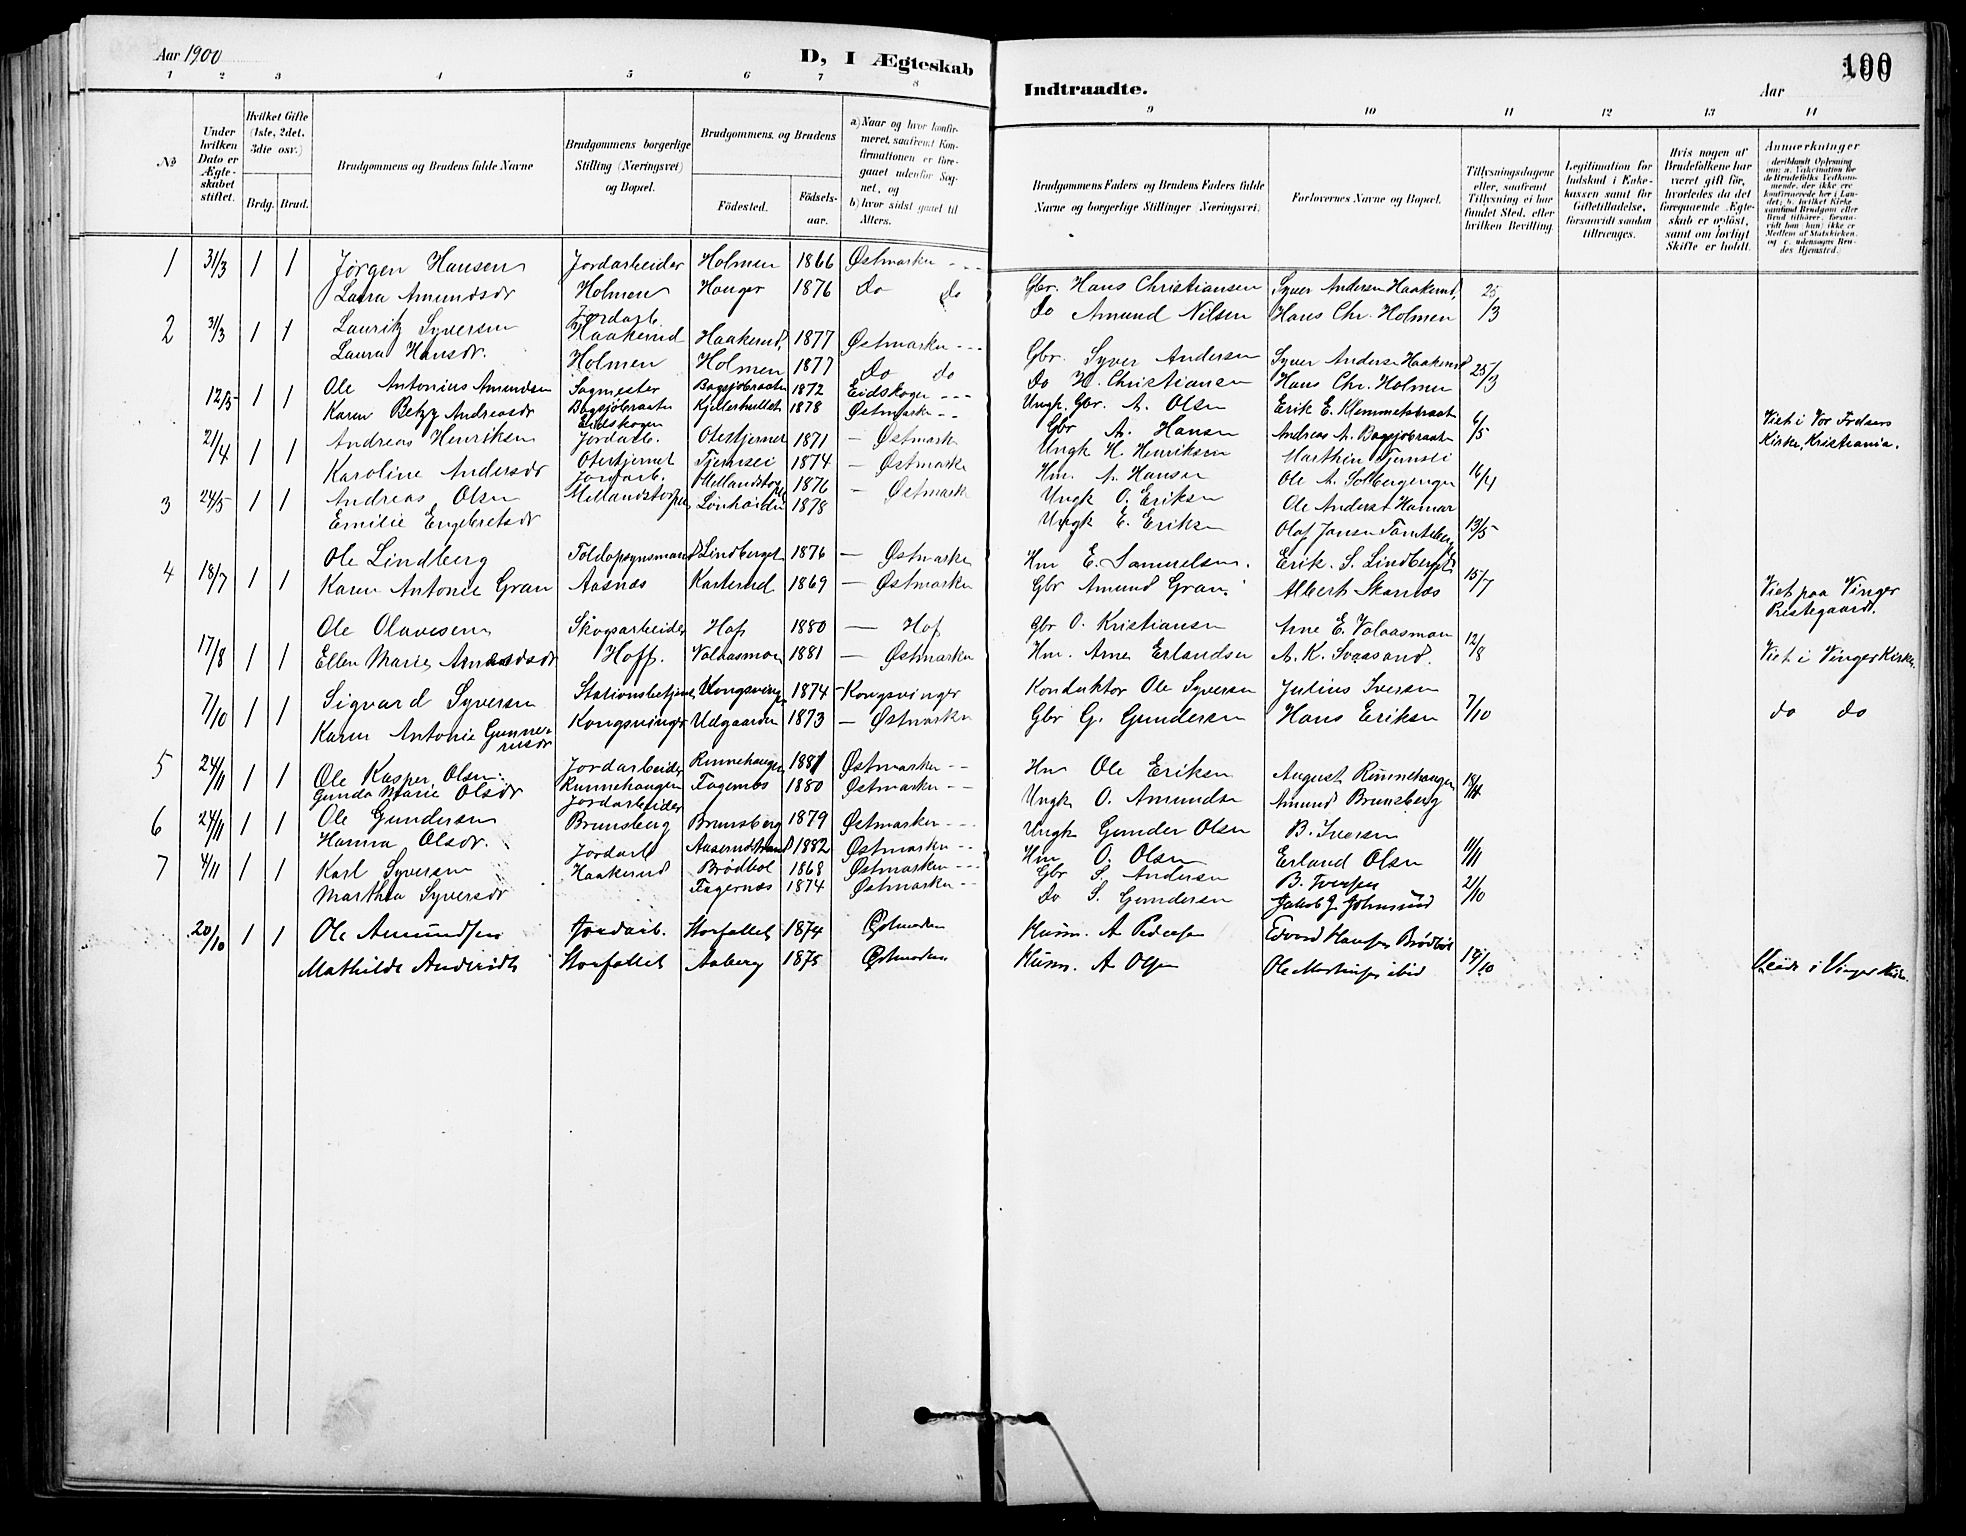 Aar 1900
D, I Ægteskab
Indtraadte.
Aar
100
1 2 3 4 5 6 7 8 9 10 11 12 13 14
No
Under hvilken Dato er Ægteskabet stiftet.
Hvilket Gifte (1ste, 2det, 3die osv.)
Brdg. Brud.
Brudgommens og Brudens fulde Navne
Brudgommens borgerlige Stilling (Næringsvei) og Bopæl.
Brudgommens, og Brudens
Fødested.
Fødselsaar.
a) Naar og hvor konfirmeret, saafremt Konfirmationen er foregaaet udenfor Sognet, og
b) hvor sidst gaaet til Alters.
Brudgommens Faders og Brudens Faders fulde Navne og borgerlige Stillinger (Næringsvei.
Forlovernes Navne og Bopæl.
Tillysningsdagene eller, saafremt Tillysning ei har fundet Sted, efter hvilken Bevilling.
Legitimation for Indskud i Enkekassen samt for Giftetilladelse, forsaavidt saadan tiltrænges.
Hvis nogen af Brudefolkene har været gift før, hvorledes da det foregaaende Ægteskab er opløst, samt om lovligt Skifte er holdt.
Anmærkninger
1 31/3 1 1 Jørgen Hansen Jordarbeider Holmen 1866 Østmarken Gbr. Hans Christiansen Syver Andersen Haakerud, 25/3
Laura Amundsdr Holmen Hauger 1876 do do Do Amund Nilsen Hans Chr. Holmen
2 31/3 1 1 Lauritz Syversen Jordarb. Haakerud Haakerud, 1877 Østmarken Gbr. Syver Andersen Syver Andersen Haakerud 25/3
Laura Hansdr. Holmen Holmen 1877 do do Do H. Christiansen Hans Chr. Holmen
12/5 1 1 Ole Antonius Amundsen Sagmester Bogsjøbraaten 1872 Eidskogen Ungk. Gbr. A. Olsen Erik E. Klemmetsbraat 6/5
Karen Betzy Andreasdr Bogsjøbraaten Eidskogen 1878 Østmarken Gbr A. Hansen Andreas A. Bogsjøbraaten Viet i Vor Frelsers Kirke, Kristiania.
21/4 1 1 Andreas Henriksen Jordarb. Otertjernet 1871 Østmarke Ungk H. Henriksen Marthin Tjernsei 16/4
Karoline Andersdr Otertjernet Tjernsei 1874 Østmarke Hm. A. Hansen Ole A.
3 24/5 1 1 Andreas Olsen Jordarb. 1876 Østmarke Ungk O. Eriksen Ole Anderst Hamar 13/5
Emilie Engebretsdr 1878 Ungk E. Eriksen Olaf Jansen
4 18/7 1 1 Ole Lindberg Toldopsynsmand Lindberget 1876 Østmarken Hm E. Samuelsen. Erik. S. Lindberget 15/7
Karen Antonie Gran Aasnæs Karterud 1869 Østmarken Gbr Amund Gran. Albert Skarnæs Viet paa Vinger Prestegaard.
17/8 1 1 Ole Olavesen Skogsarbeider Hof 1880 Hof Gbr O. Kristiansen Arne E. Valaasmon 12/8
Ellen Marie Arnesdr Hoff. Valaasmon 1881 Østmarken Hm. Arne Erlandsen A. K. Svaasand. Viet i Vinger Kirke.
7/10 1 1 Sigvard Syversen Stationsbetjent Kongsvinger 1874 Kongsvinger Konduktør Ole Syversen Julius Iversen 7/10
Karen Antonie Gunnerusdr Kongsvinger Udgaarden 1873 Østmarken Gbr G. Gundersen Hans Eriksen do do
5 24/11 1 1 Ole Kasper Olsen. Jordarbeider Rinnehaugen 1881 Østmarken Hm Ole Eriksen August Rinnehaugen 18/11
Gunda Marie Olsdr Runnehaugen Fagernæs 1880 Østmarken Ungk O. Amundsen Amund Brunsberg
6 24/11 1 1 Ole Gundersen Jordarbeider Brunsberg Brunsberg 1879 Østmarken Ungk Gunder Olsen B. Iversen 11/11
Hanna Olsdr. 1882 Østmarken Hm O. Olsen Erland Olsen
7 4/11 1 1 Karl Syversen Jordarb Haakerud Brødbøl 1868 Østmarken Gbr S. Andersen B. Iversen 21/10
Marthea Syversdr Fagernæs 1874 Østmarken Do S. Gundersen Jakob J. Johnsrud
20/10 1 1 Ole Amundsen Jordarb. Storfallet 1874 Østmarken Husm. A Pedersen Edvard Hansen Brødbøl 14/10
Mathilde Andersdt Storfallet Aaberg 1875 Østmarken Husm. A Olsen Ole Martinsen ibid Viede i Vinger Kirke.